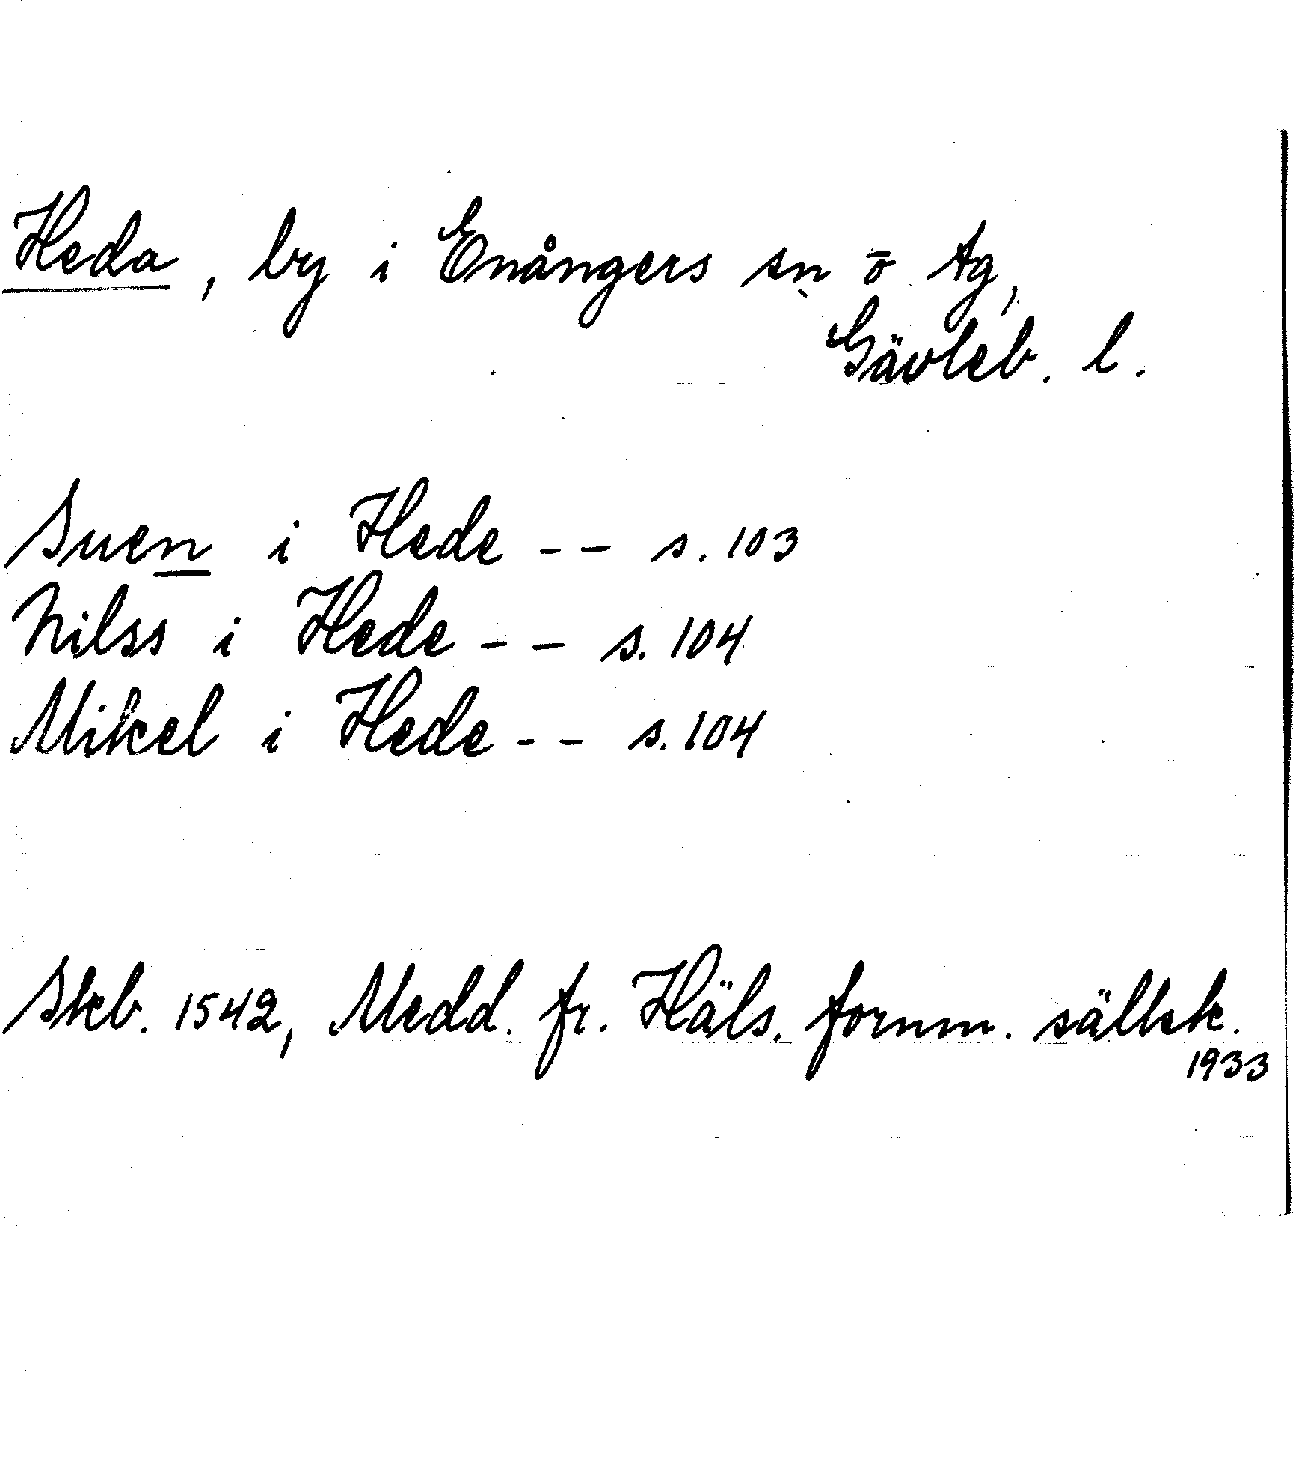 Heda, by i Enångers sn o tg,
Gävleb. l.
Suen i Hede -- s. 103
Nilss i Hede -- s. 104
Mikel i Hede -- s. 104
Skb. 1542, Medd. fr. Häls. fornm. sällsk.
1933